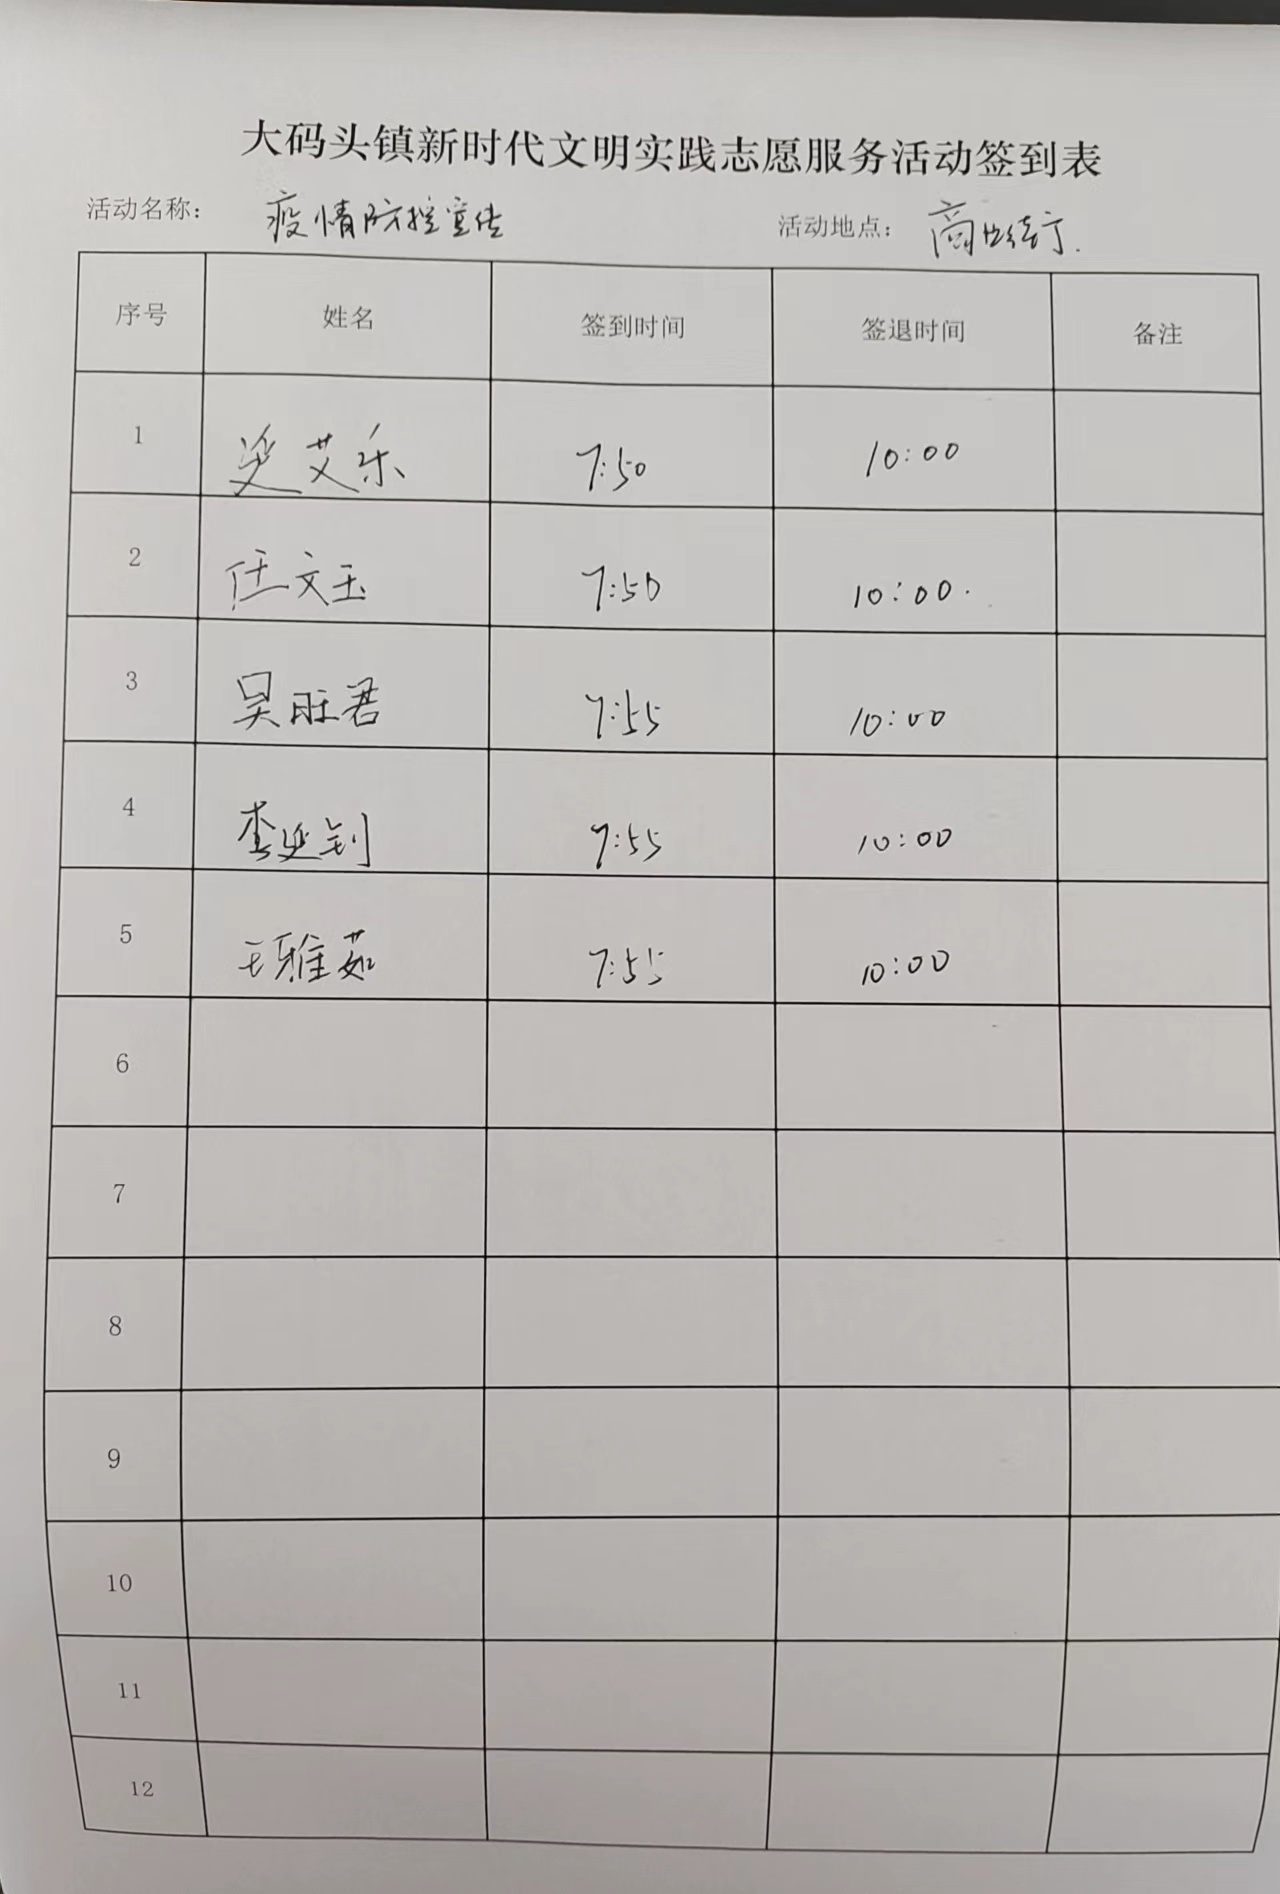 大码头镇新时代文明实践志愿服务活动签到表
活动名称： 疫情防控宣传 活动地点： 商业街
序号 姓名 签到时间 签退时间 备注
1 艾乐 7:50 10:00
2 任文玉 7:50 10:00.
3 吴旺君 7:55 10:00
4 李延钊 7:55 10:00
5 王雅茹 7:55 10:00
6
7
8
9
10
11
12